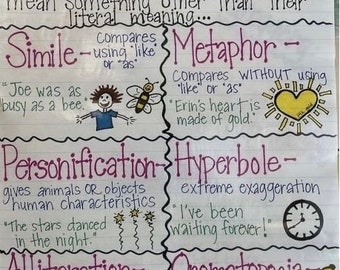 mean something other than their
literal meaning...
Simile - Compares
using "like"
or "as"
"Joe was as
busy as a bee."
Metaphor -
Compares WITHOUT using
"like" or "as"
"Erin's heart is
made of gold."
Personification -
gives animals OR objects
human characteristics
"The stars danced
in the night."
Hyperbole -
extreme exaggeration
"I've been
waiting forever!"
Alliteration -
Onomatopoeia -